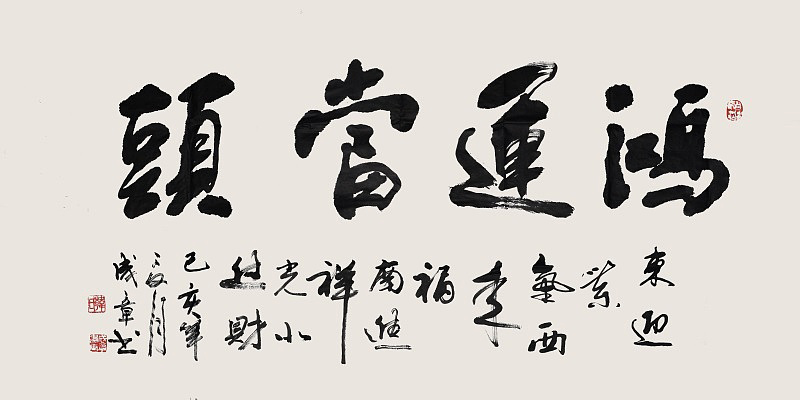 鴻運當頭
東迎
紫
氣西
福
南進
祥
光北
財
己亥年
夏月
成章書